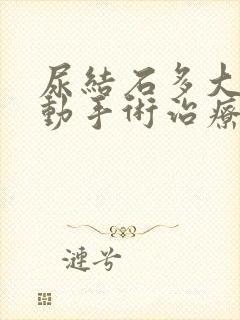 尿結石多大
動手術治療
漣兮